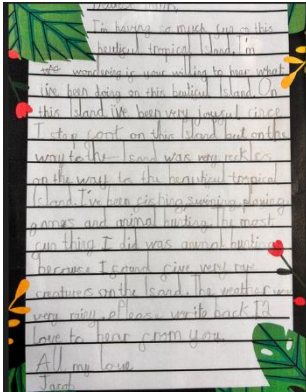 I'm having so much fun on this
beutiful tropical Island. I'm
wondering is your willing to hear what
i've been doing on this beutiful Island. On
this island ive been very joyful since
I step foot on this Island but on the
way to the Island was very reckles
on the way to the beautiful tropical
island. I've been fishing swiming playing
games and animal hunting. The most
fun thing I did was animal hunting
because I found five very rare
creatures on the Island. The weather was
very nicey. Please write back I'd
love to hear from you.
All my love
Jacob